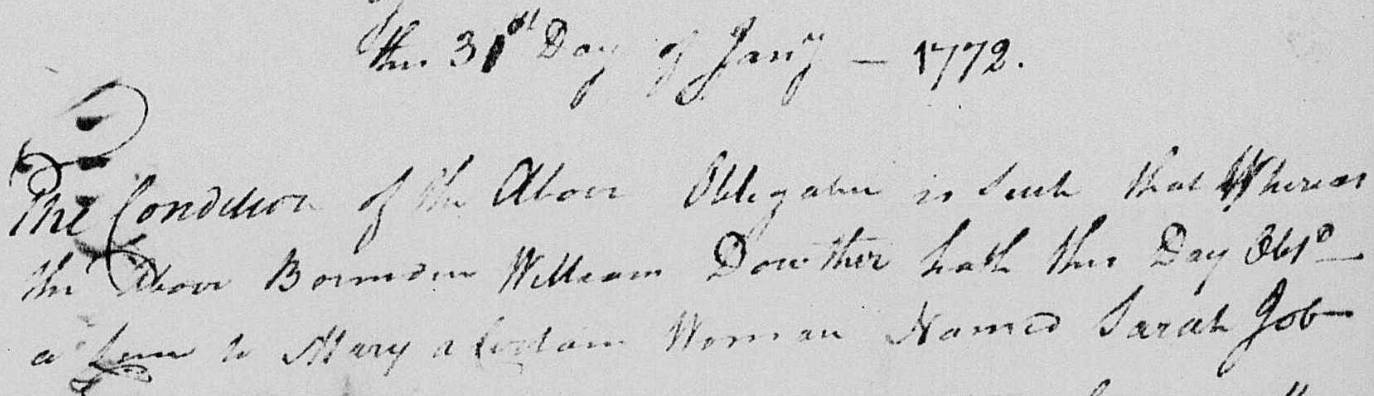 this 31st Day of Jany — 1772.
The Condition of the Above Obligation is Such that Whereas
the Above Bounden William Dowther hath this Day Obtd —
a to Marry a Certain Woman Named Sarah Job